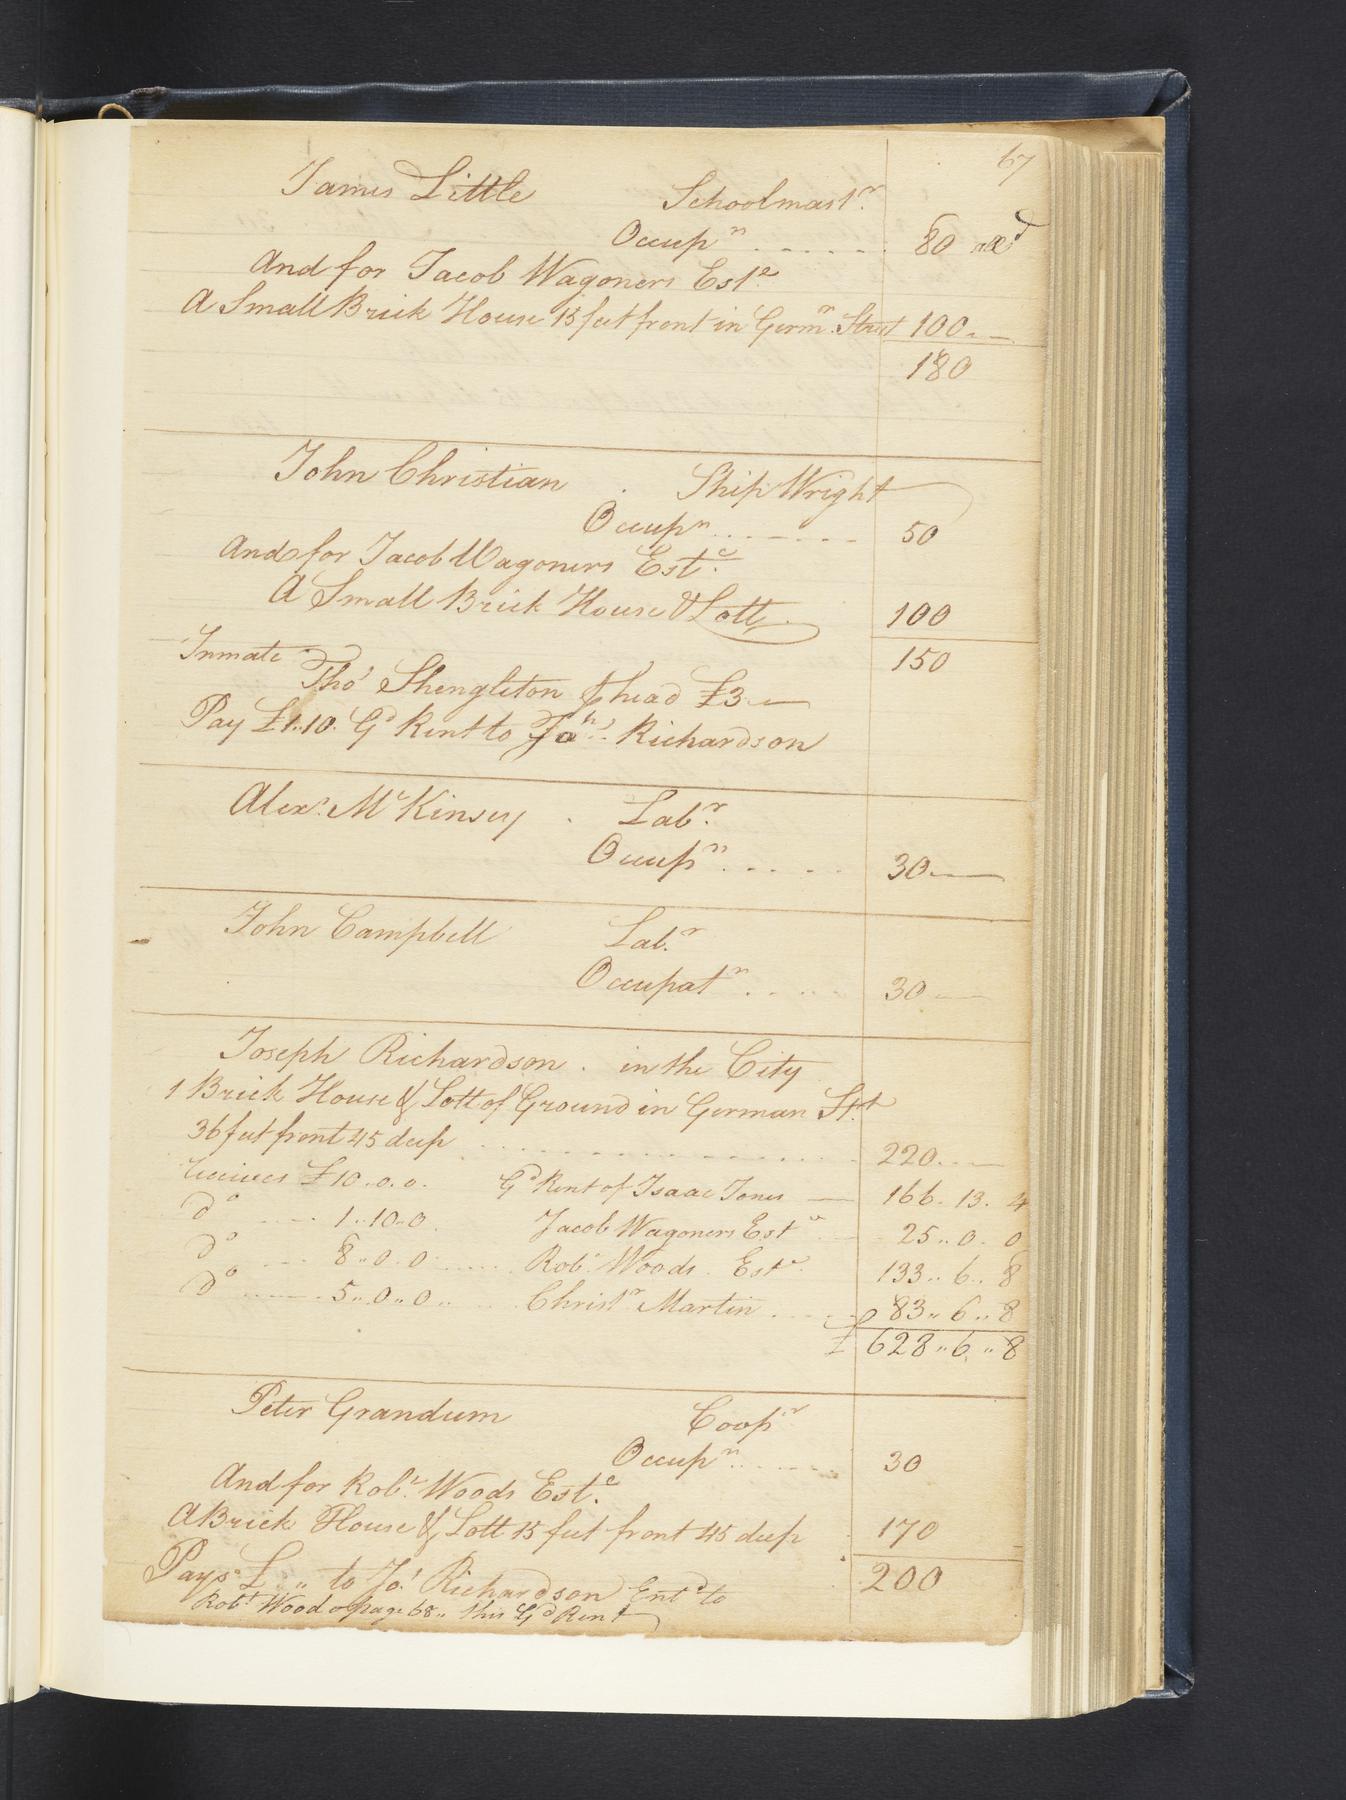 67
James Little Schoolmastr.
Occupn. ...... 80
And for Jacob Wagoners Este.
A Small Brick House 15 feet front in Germn. Street 100
180
John Christian Ship Wright
Occupn ....... 50
And for Jacob Wagoners Este.
A Small Brick House & Lott 100
150
Inmate
Thos Shengleton ⅌ head £3
Pay £1..10. Gd Rent to Richardson
Alexr. McKinsey Labr.
Occupn ..... 30
John Campbell Labr.
Occupatn .... 30
Joseph Richardson. in the City
1 Brick House & Lott of Ground in German Stt.
36 feet front 45 deep 220
Receives £10..0..0. Gd Rent of Isaac Jones 166. 13. 4
do 1..10..0. Jacob Wagoners Este 25..0..0
do 8..0..0 Robt. Woods Este. 133..6..8
do 5..0..0.. Christr Martin .... 83..6..8
£ 628..6..8
Peter Grandum Coopr
Occupn ...... 30
And for Robt. Woods Este.
A Brick House & Lott 15 feet front 45 deep 170
Pays £ ,, to Jos. Richardson Entd to 200
Robt. Woods page 68.. this Gd Rent